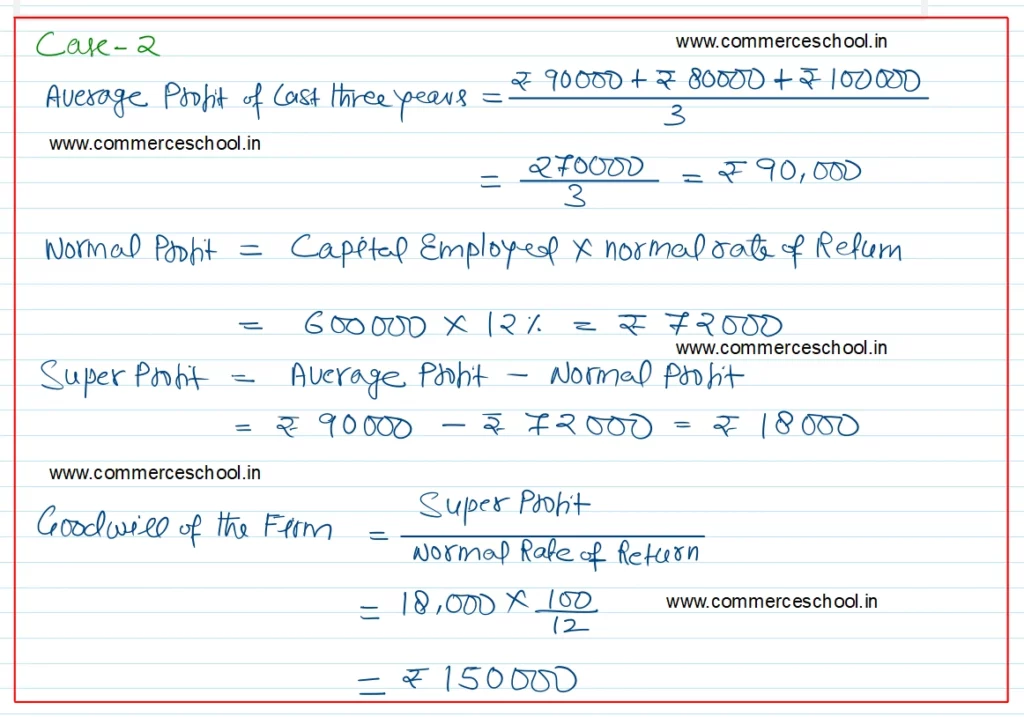 Case-2
www.commerceschool.in
Average Profit of Last three years = ₹ 90000 + ₹ 80000 + ₹ 100000 / 3
www.commerceschool.in
= 270000 / 3 = ₹ 90,000
Normal Profit = Capital Employed × normal rate of Return
= 600000 × 12% = ₹ 72000
www.commerceschool.in
Super Profit = Average Profit - Normal Profit
= ₹ 90000 - ₹ 72000 = ₹ 18000
www.commerceschool.in
Goodwill of the Firm = Super Profit / Normal Rate of Return
= 18,000 × 100 / 12
www.commerceschool.in
= ₹ 150000